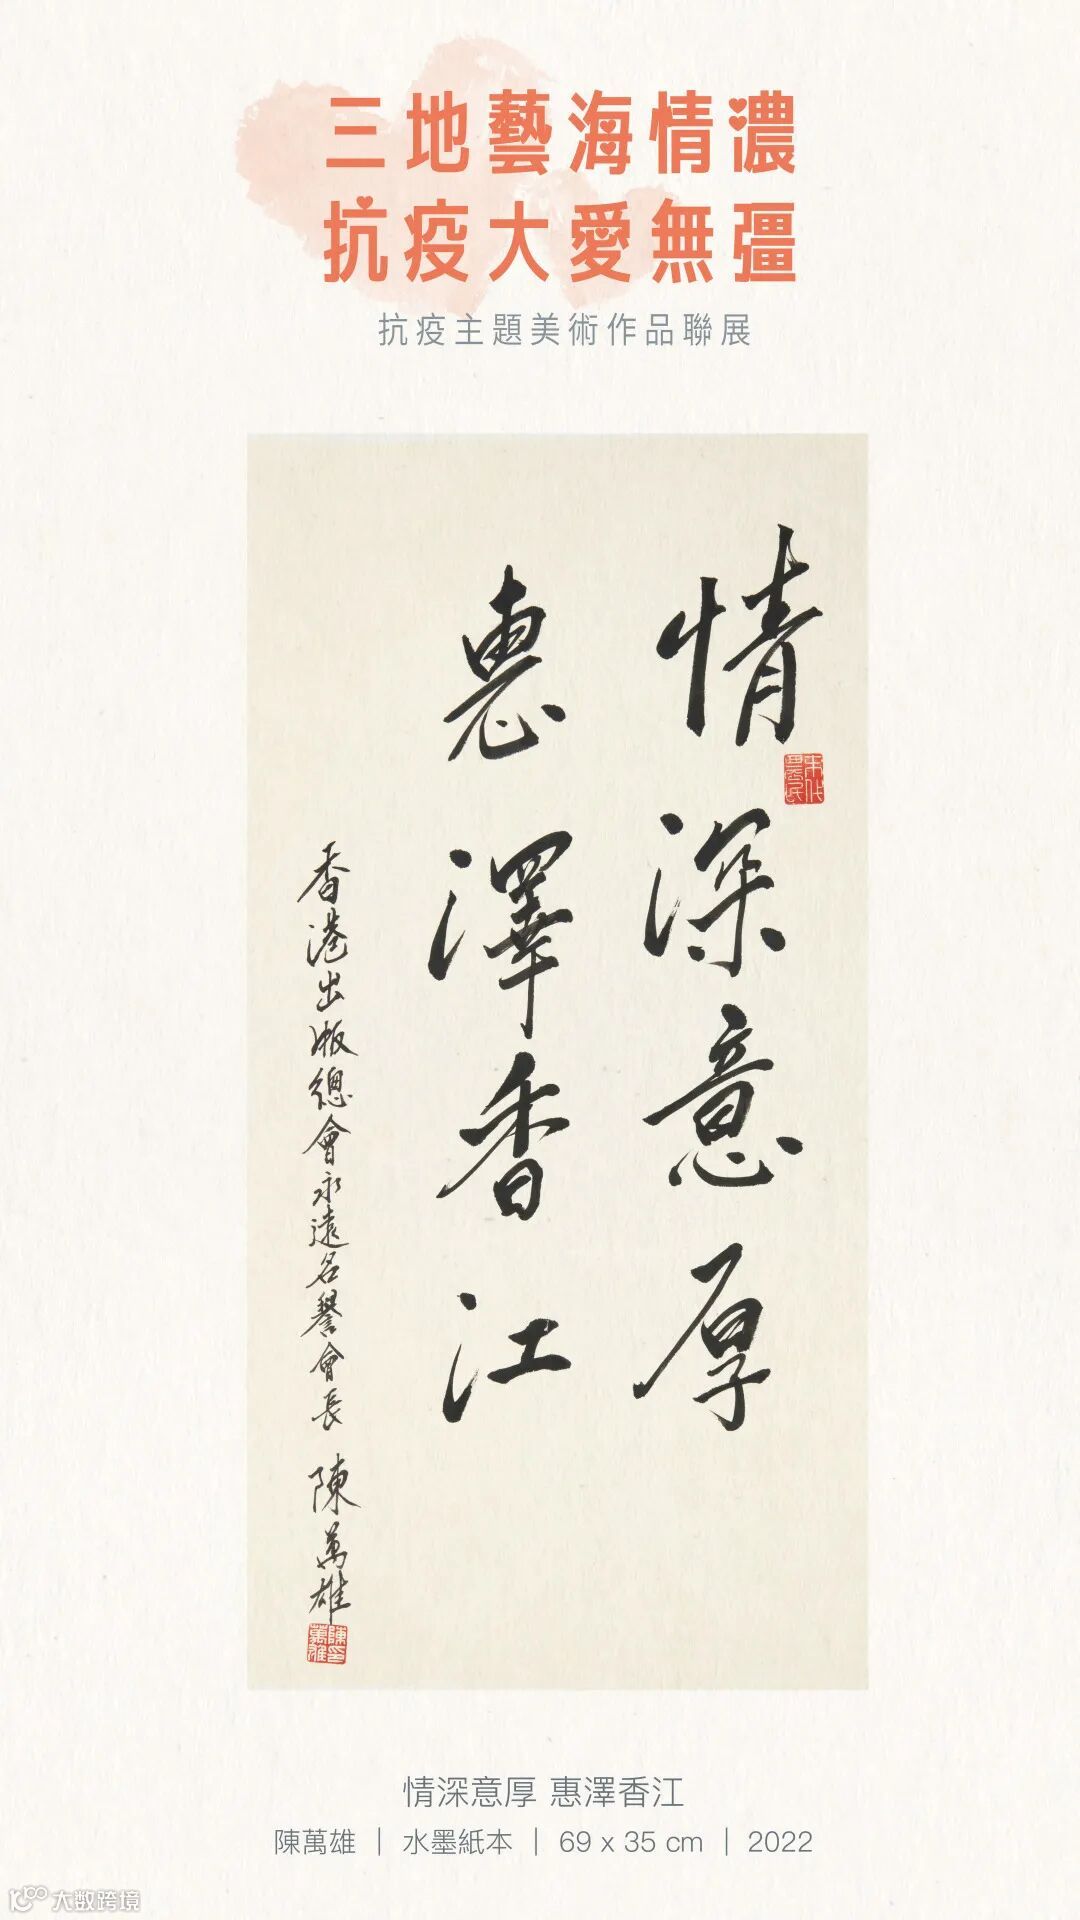 三地藝海情濃
抗疫大愛無疆
抗疫主題美術作品聯展
情深意厚
惠澤香江
香港出版總會永遠名譽會長 陳萬雄
陳萬雄印
情深意厚 惠澤香江
陳萬雄 | 水墨紙本 | 69 x 35 cm | 2022
大数跨境